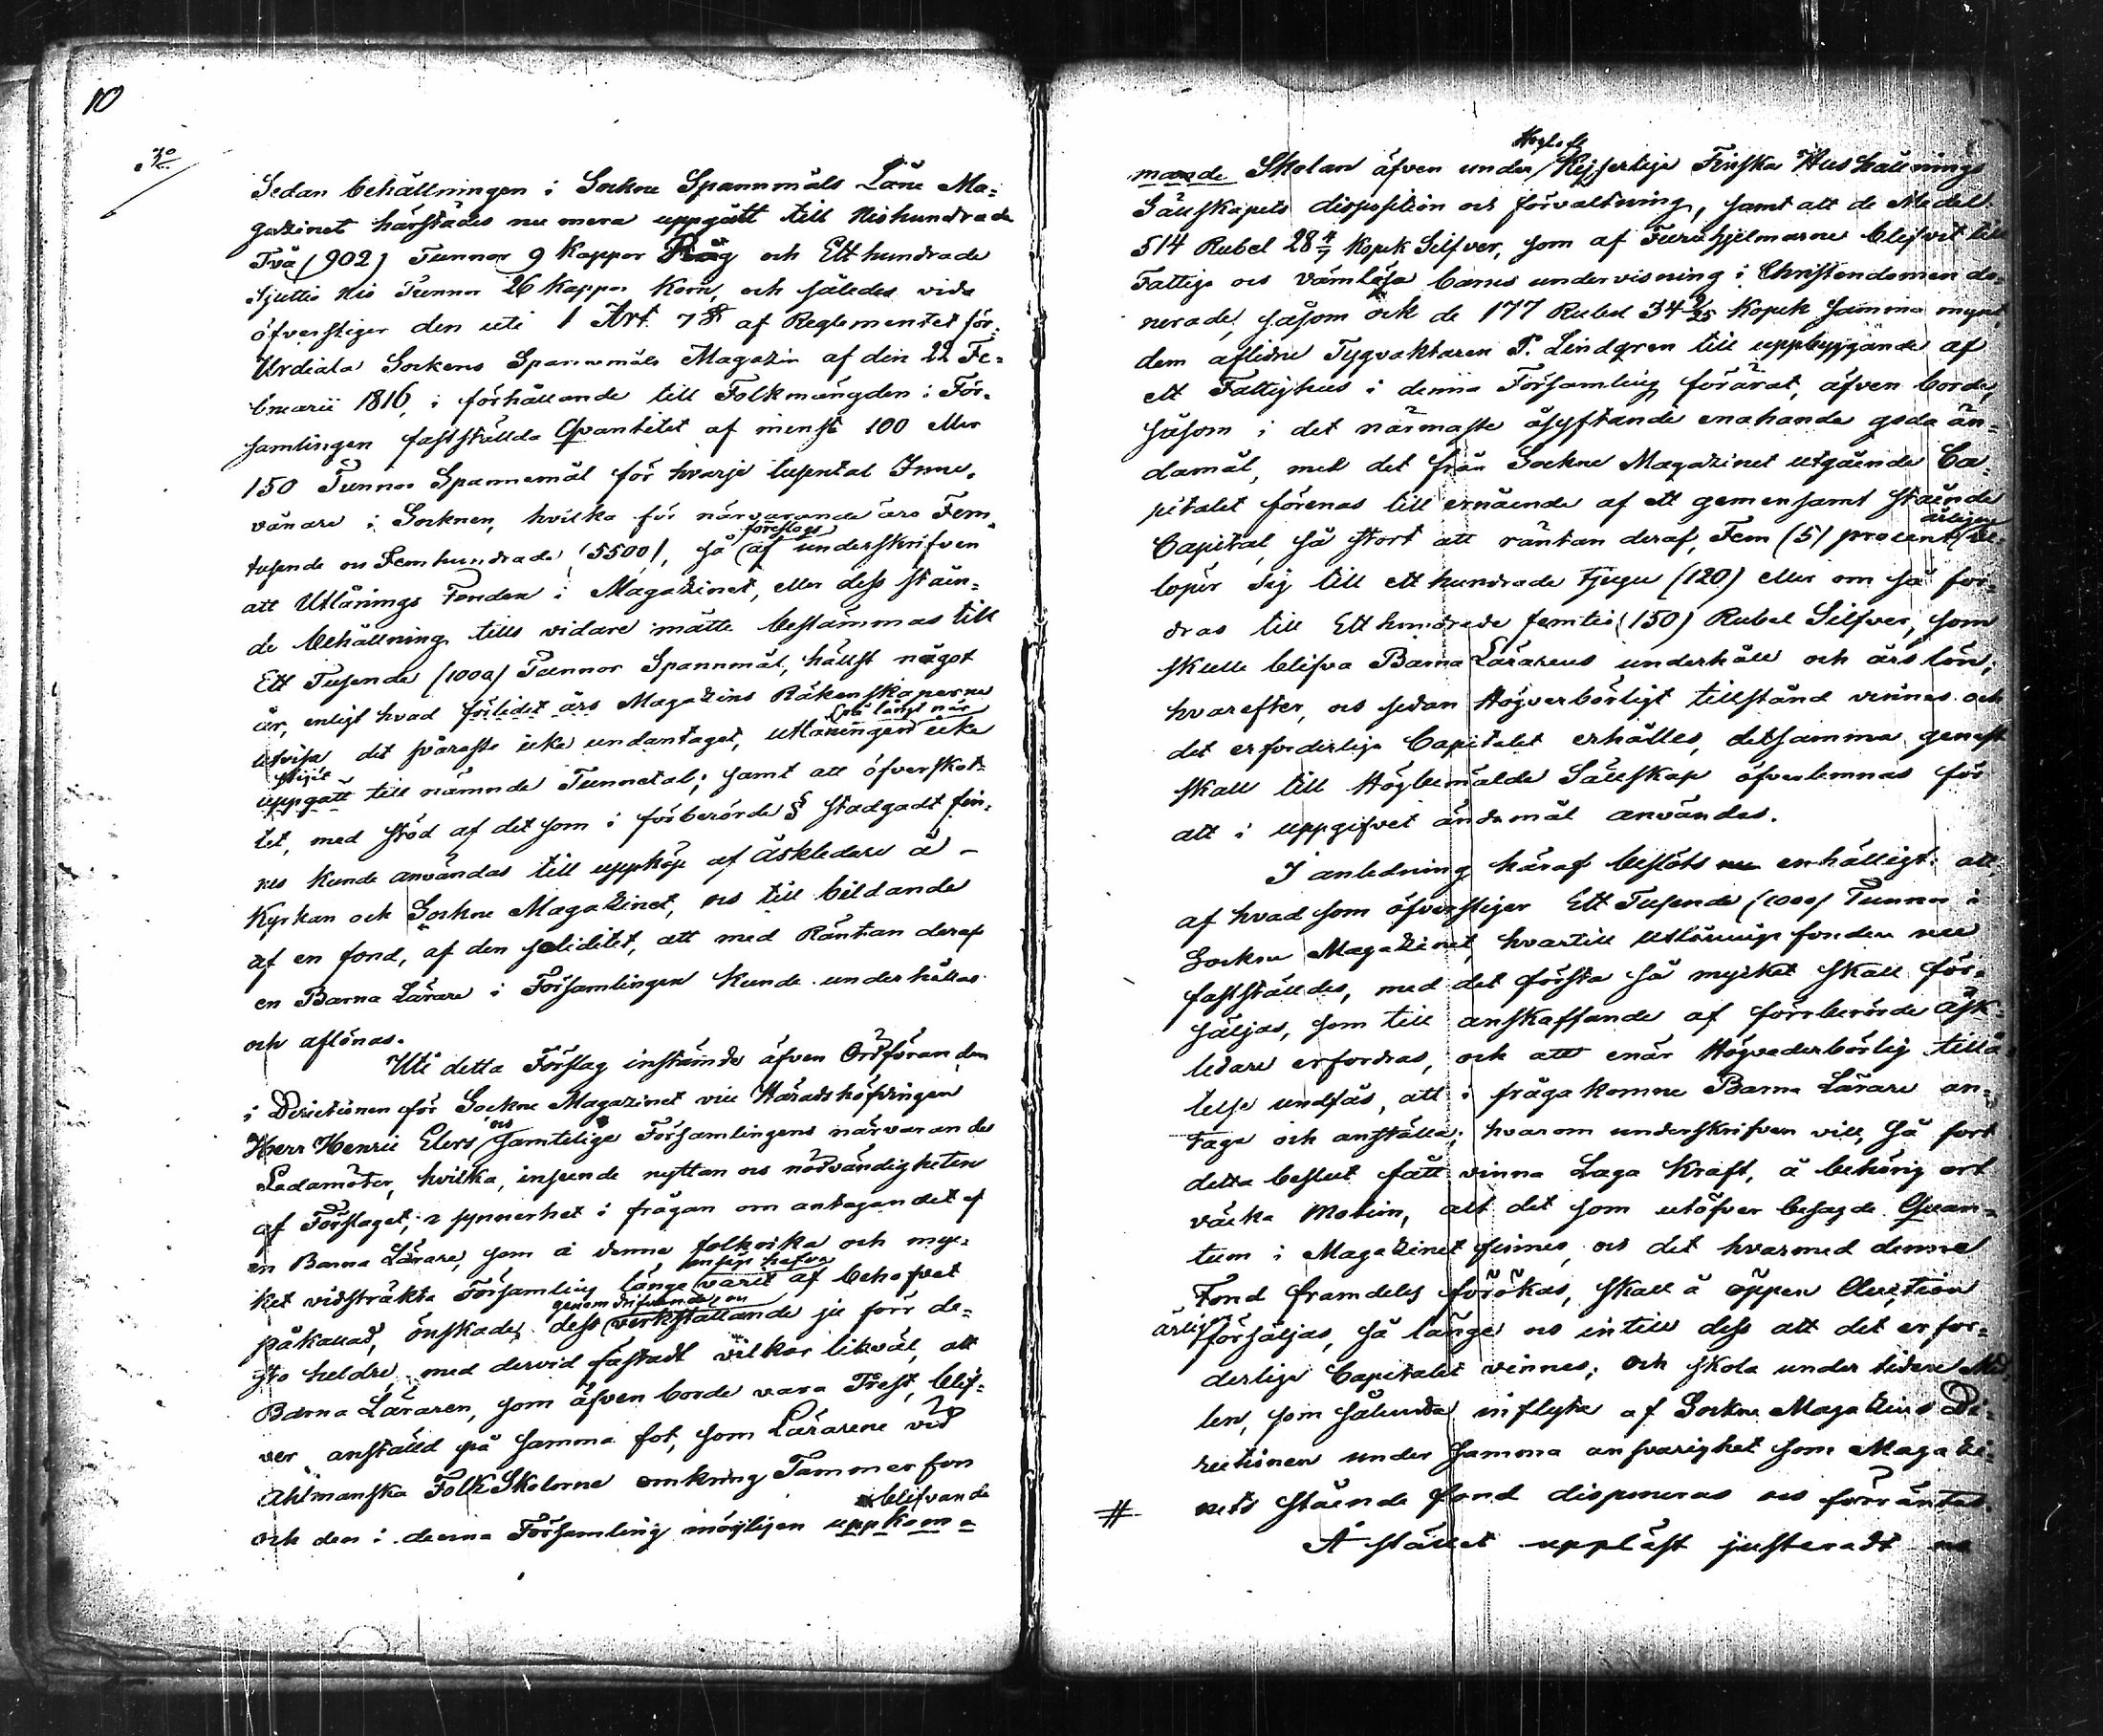 10
Sedan behållningen i Sockne Spannmåls Låne Ma=
gazinet härstädes nu mera uppgått till Niohundrade
Två (902) Tunnor 9 Kappor Råg och Ett hundrade
Sjuttio Nio Tunnor 26 Kappor Korn, och således vida
öfverstiger den uti 1 Art. 7 § af Reglementet för
Urdiala Sockens Spannmåls Magazin af den 22 Fe=
bruarii 1816, i förhållande till Folkmängden i För=
samlingen fastställda Qvantitet af minst 100 eller
150 Tunnor Spannemål för hvarje tusental Inne=
vånare i Socknen, hvilka för närvarande äro Fem=
föreslogs
tusende os Femhundrade (5500), så af underskrifven
att Utlånings Fonden i Magazinet, eller dess ståen=
de behållning tills vidare måtte bestämmas till
Ett Tusende (1000) Tunnor Spannmål, hällst något
år, enligt hvad förlidet års Magazins Räkenskaperne
på långt när
utvisa, det svåraste icke undantaget, utlåningen icke
stigit
uppgått till nämnde Tunnetal; samt att öfverskot=
tet, med stöd af det som i förberörde § stadgadt fin=
nes kunde användas till upphöp af Åskledare å
Kyrkan och Sockne Magazinet, os till bildande
af en fond, af den soliditet, att med Räntan deraf
en Barna Lärare i Församlingen kunde underhållas
och aflönas.
Uti detta Förslag instämde äfven Ordföranden
i Direktionen för Sockne Magazinet vice Häradshöfdingen
os
Herr Henric Elers samtelige Församlingens närvarande
Ledamöter, hvilka, inseende nyttan os nödvändigheten
af Förslaget, i synnerhet i frågan om antagandet af
en Barna Lärare, som å denna folkrika och myc=
ket vidsträkta Församling länge varit af behofvet
genom drifvande
påkallad, önskade, dess verkställande ju förr de=
sto heldre, med dervid fästadt vilkor likväl, att
Barna Läraren, som äfven borde vara Prest, blif=
ver anställd på samma fot, som Lärarene vid
Ahlmanska Folk Skolorne omkring Tammerfors
blifvande
och den i denna Församling möjligen uppkom=
mande Skolan äfven under Kejserlige Finska Hushållnings
Sällskapets disposition och förvaltning, samt att de Medel
514 Rubel 28 4/7 Kopek Silfver, som af Furuhjelmarne blifvit till
Fattige os värnlösa barns undervisning i Christendomen do=
nerade, såsom ock de 177 Rubel 34 2/25 Kopek samma mynt,
dem aflidne Tygvaktaren P. Lindgren till uppbyggande af
ett Fattighus i denna Församling förärat, äfven borde,
såsom i det närmaste åsyftande enahanda goda än=
damål, med det från Sockne Magazinet utgående Ca=
pitalet förenas till ernående af ett gemensamt stående
årligen
Capital, så stort att räntan deraf, Fem (5) procent be=
löper sig till ett hundrade tjugu (120) eller om så for=
dras till Ett hundrade femtio (150) Rubel Silfver, som
skulle blifva Barna Lärarens underhåll och års lön;
hvarefter, os sedan Högverbörligt tillstånd vinnes och
det erforderliga Capitalet erhålles, detsamma genast
skall till Högbemälde Sällskap öfverlemnas för
att i uppgifvet ändamål användas.
I anledning häraf beslöts enhälligt: att
af hvad som öfverstiger Ett Tusende (1000) Tunnor i
Sockne Magazinet, hvartill Utlånings fonden nu
fastställdes, med det första så mycket skall för=
säljas, som till anskaffande af förrberörde åsk=
ledare erfordras, och att enär Högvederbörlig tillå=
telse undfås, att i fråga komne Barna Lärare an=
taga och anställa; hvarom underskrifven vill, så fort
detta beslut fått vinna Laga Kraft, å behörig ort
väcka Motion, allt det som utöfver besagde Quan=
tum i Magazinet finnes, os det hvarmed denna
Fond framdeles förökas, skall å öppen Auction
årligen försäljas, så länge os intill dess att det erfor=
derlige Capitalet vinnes; och skola under tiden Med=
len, som sålunda inflyta af Sockne Magazins Di=
rectionen under samma ansvarighet som Magazi=
nets stående fond disponeras os förräntas.
Å stället uppläst justeradt os